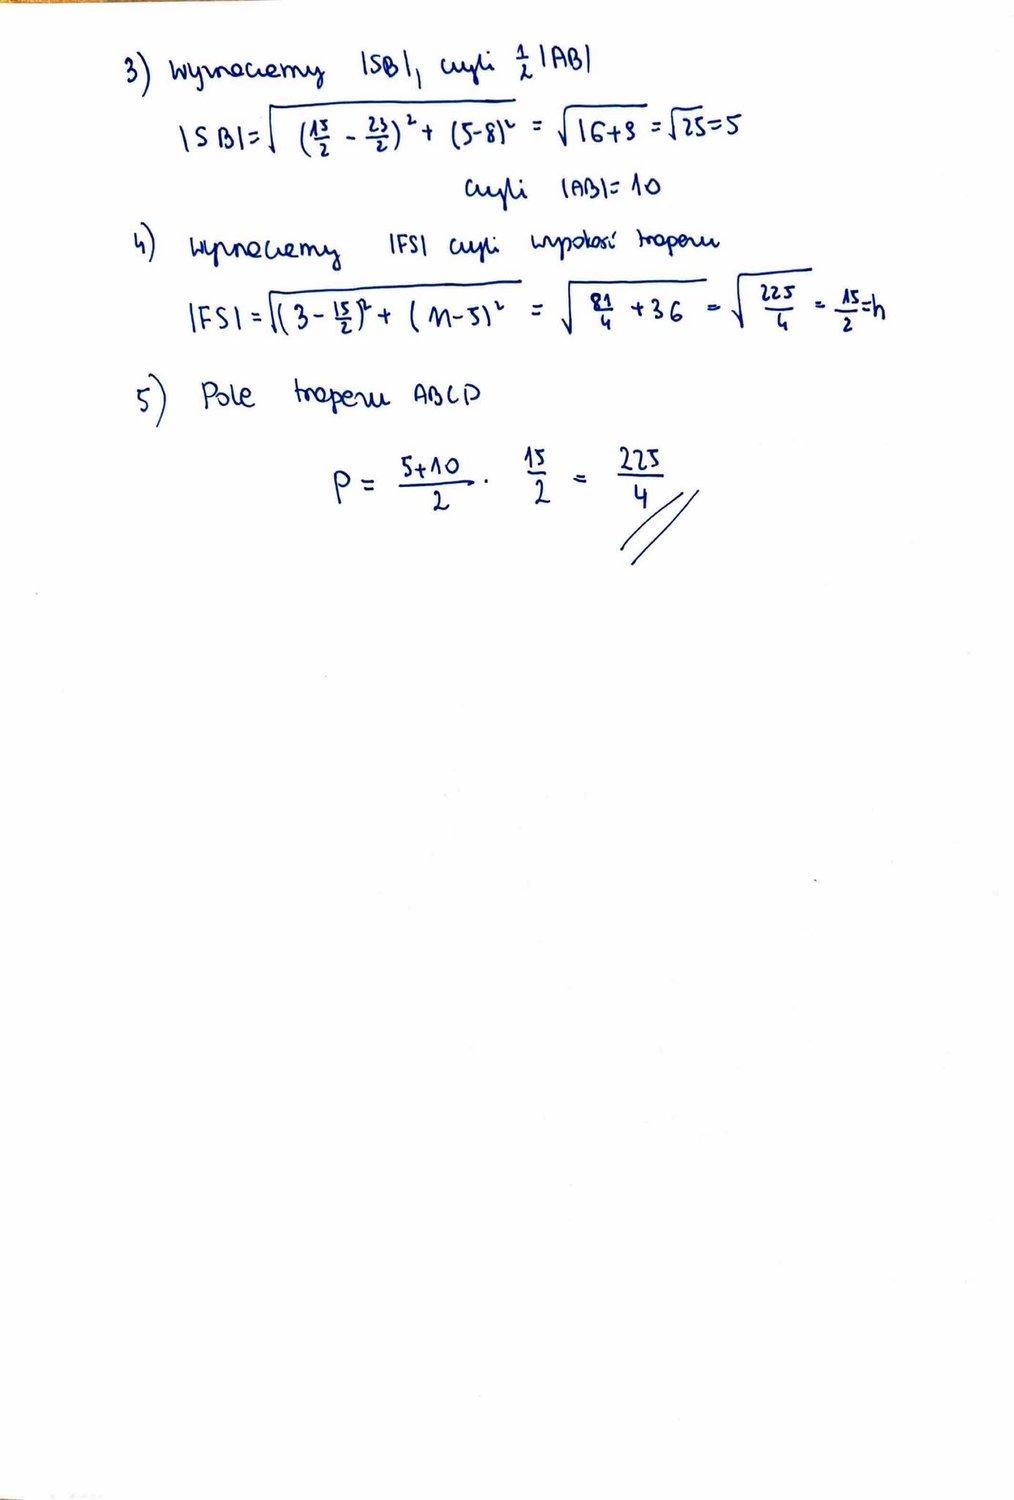 3) Wyznaczamy |SB|, czyli 1/2 |AB|
|SB| = √((15/2 - 23/2)² + (5-8)²) = √(16+9) = √25 = 5
czyli |AB| = 10
4) Wyznaczamy |FS| czyli wysokość trapezu
|FS| = √((3 - 15/2)² + (11-5)²) = √(81/4 + 36) = √(225/4) = 15/2 = h
5) Pole trapezu ABCD
P = (5+10)/2 · 15/2 = 225/4